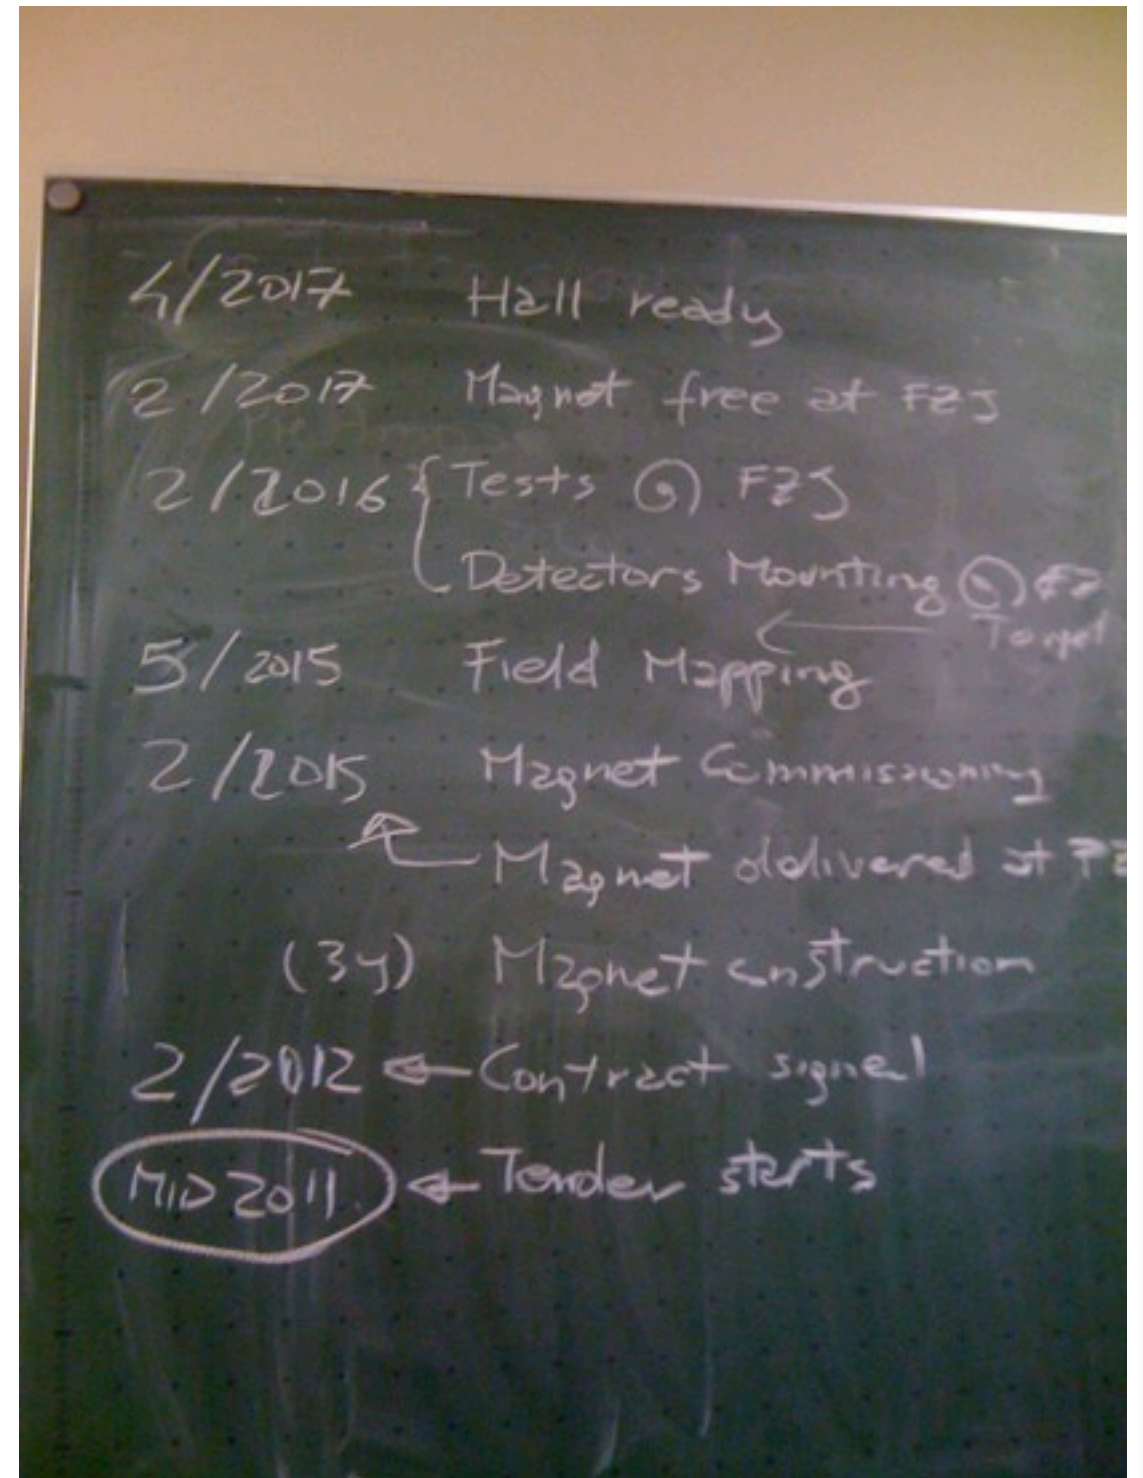 4/2017 Hall ready
2/2017 Magnet free at FZJ
2/2016 { Tests @ FZJ
Detectors Mounting @ FZ
← Target
5/2015 Field Mapping
2/2015 Magnet Commissioning
Magnet delivered at FZ
(3y) Magnet construction
2/2012 ← Contract signed
MID 2011 ← Tender starts